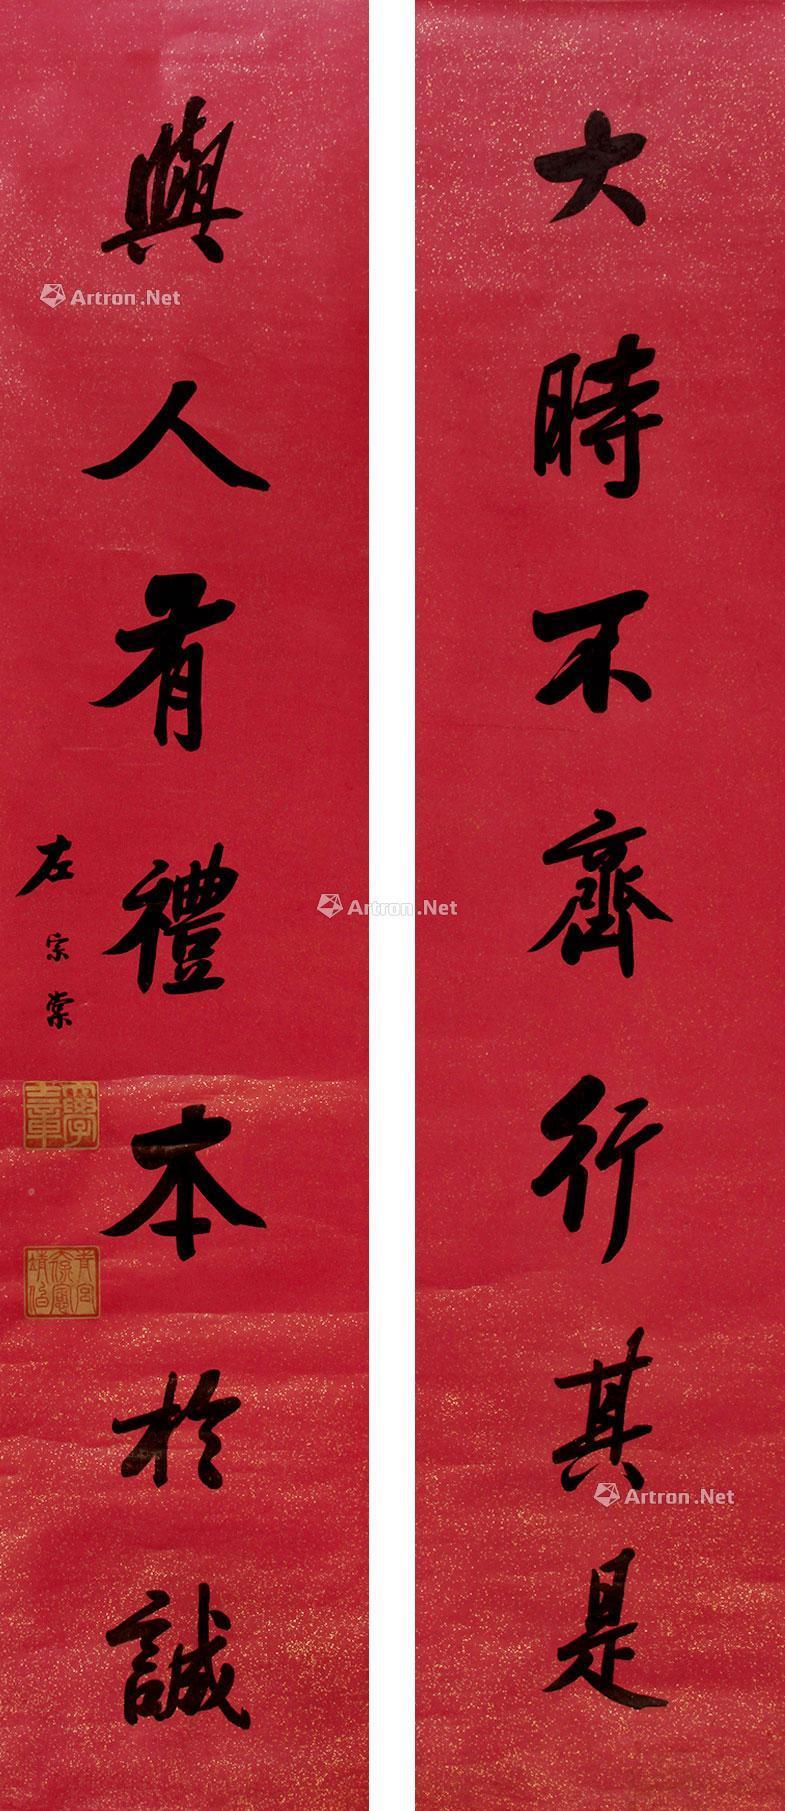 大時不齊行其是
與人有禮本於誠
左宗棠
Artron.Net
Artron.Net
Artron.Net